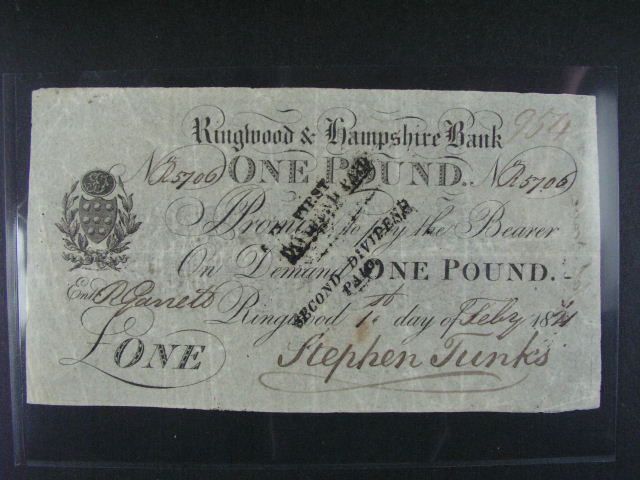 Ringwood & Hampshire Bank
954
No R5706 ONE POUND. No R5706
I Promise to Pay the Bearer
On Demand ONE POUND.
FIRST
DIVIDEND PAID
SECOND DIVIDEND
PAID
Entd R Garrett Ringwood 1st day of Feby 1821
£ONE
Stephen Tunks